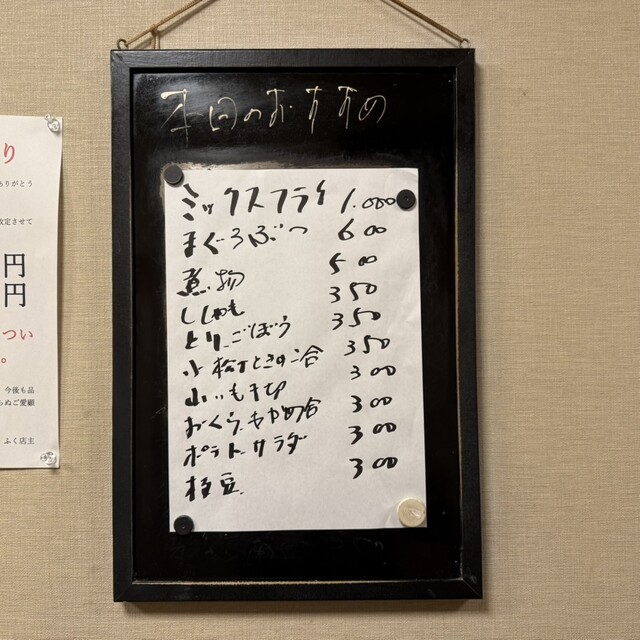 本日のおすすめ
ミックスフライ 1.000
まぐろぶつ 600
煮物 500
ししゃも 350
とりごぼう 350
小松丁ときのこ合 350
山いも千切 300
おくら、わかめ合 300
ポテトサラダ 300
枝豆 300
り
ありがとう
改定させて
円
円
つい
。
今後も品
らぬご愛顧
ふく店主